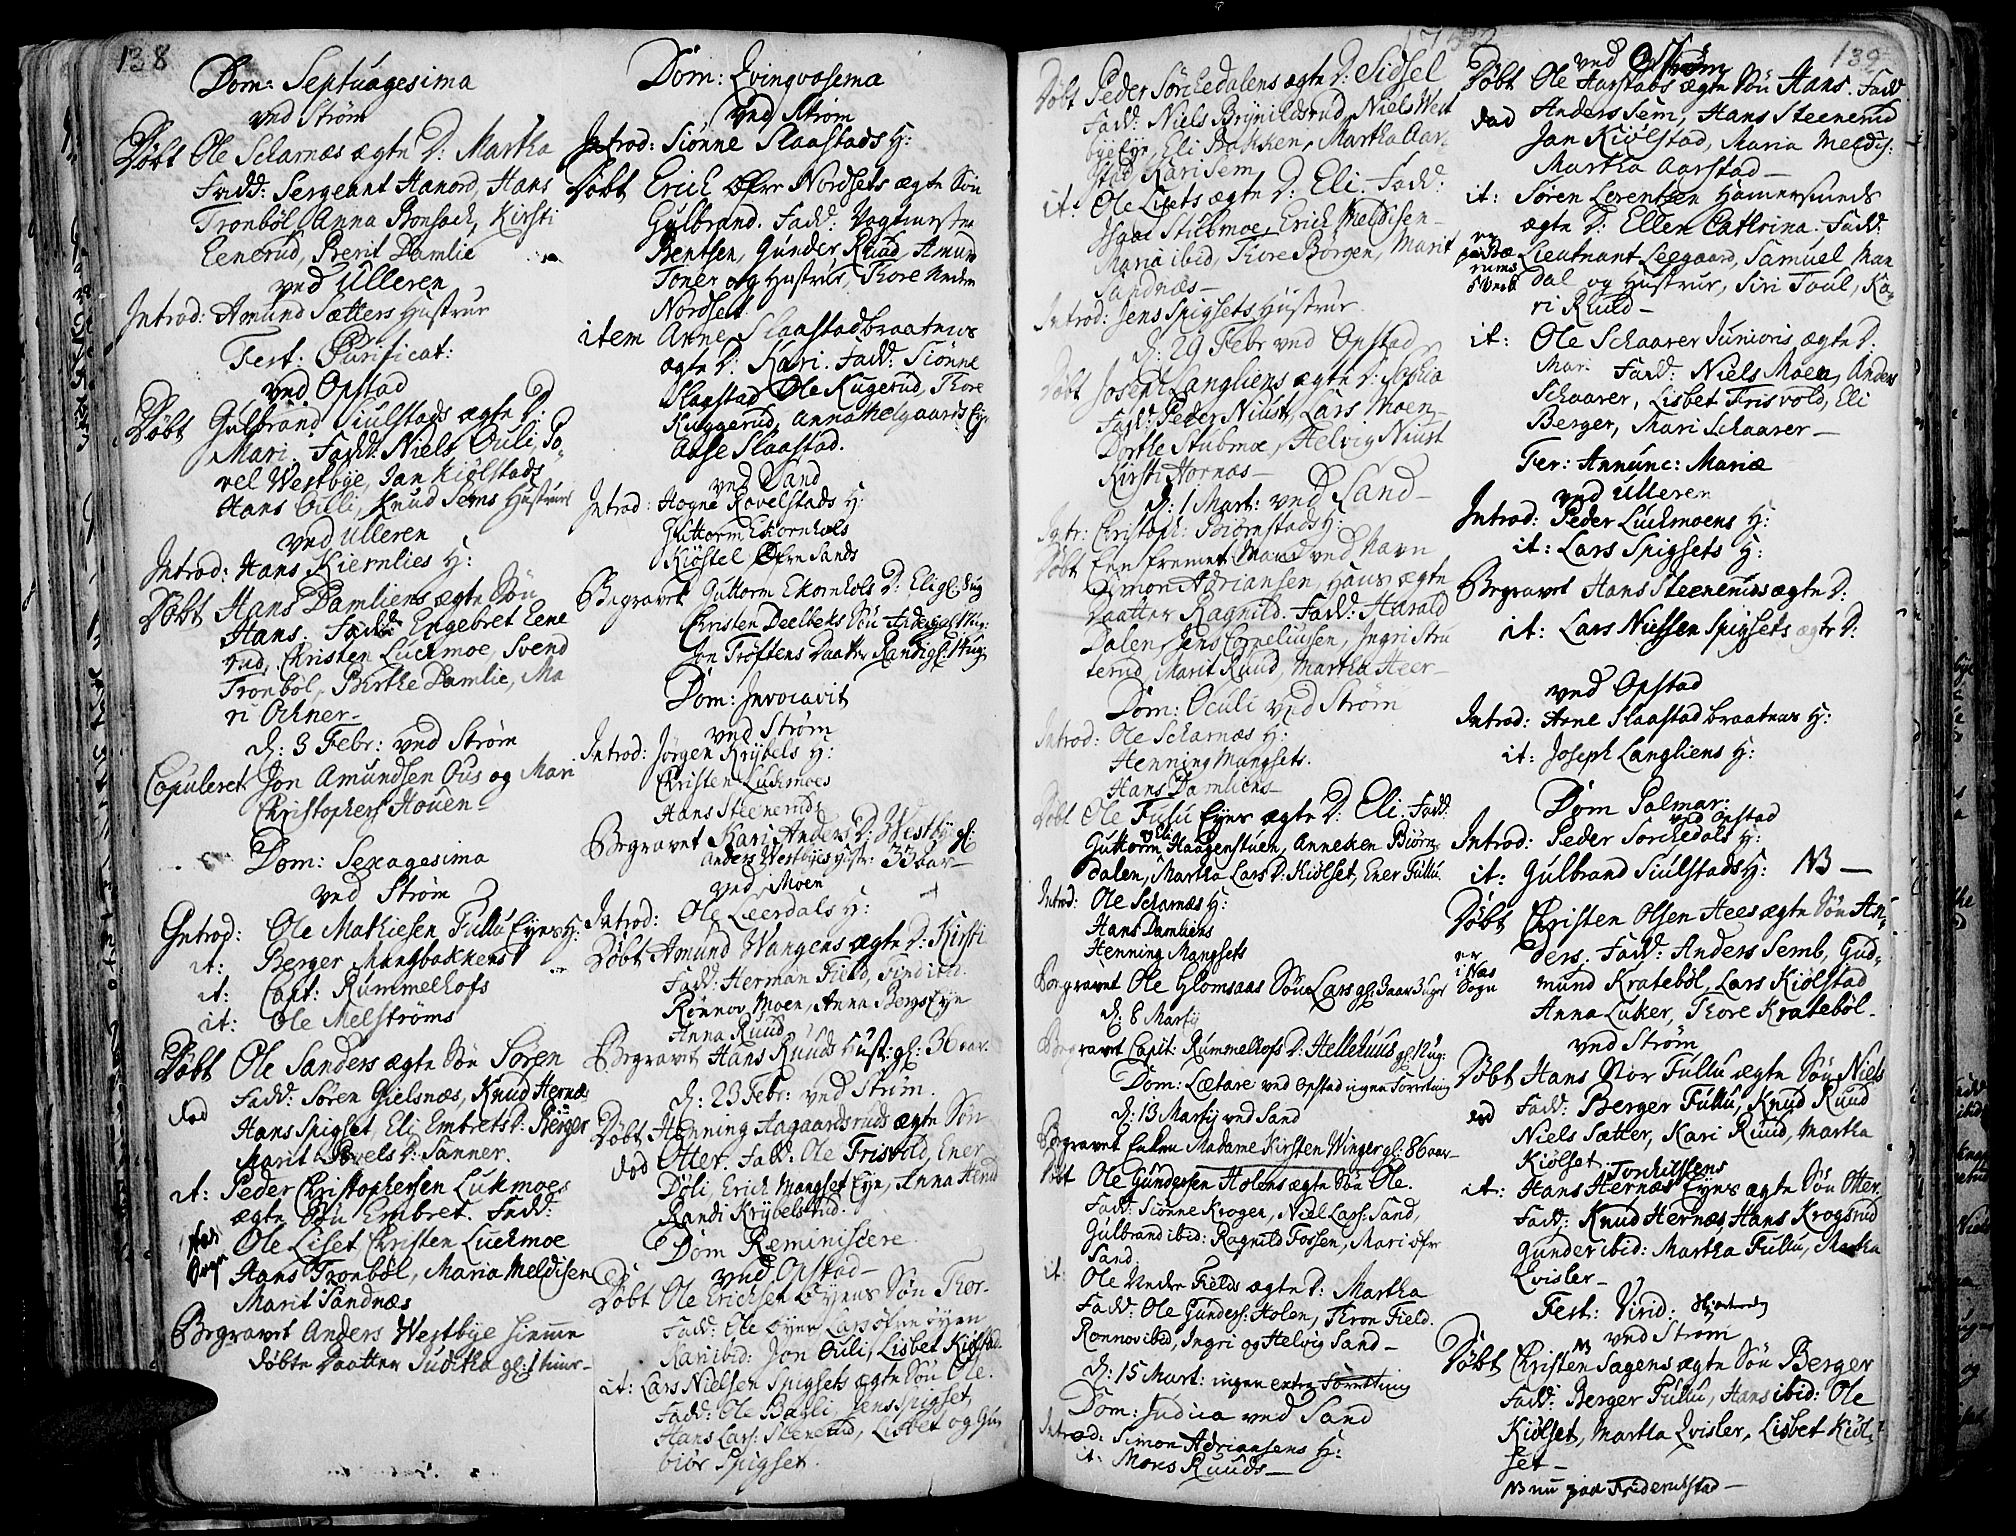 138
Dom: Septuagesima
ved Strøm
Døbt Ole Scharnæs ægte D: Martha
Fadd: Sergeant Hanord, Hans
Tronbøl, Anna Bonsach, Kirsti
Eenerud, Berit Damlie
ved Ulleren
Introd: Amund Sætters Hustrue
Fest: Purificat:
ved Opstad
Døbt Gulbrand Siulstads ægte D:
Mari. Fadd: Niels Ouli, Po-
vel Westbye, Jan Kiølstads
Hans Ouli, Knud Sems Hustrue
ved Ulleren
Introd: Hans Kiernlies H:
Døbt Hans Damliens ægte Søn
Hans. Fadd: Engebret Eene
rud, Christen Luckmoe, Svend
Tronbøl, Birthe Damlie, Ma
ri Ochner-
d: 3 Febr: ved Strøm
Copuleret Jon Amundsen Ous og Mari
Christophers Houen-
Dom: Sexagesima
ved Strøm
Introd: Ole Mathiesen Fullu Eyes H:
it: Berger Mangbakkens
it: Capt: Rummelhofs
it: Ole Melstrøms
Døbt Ole Sanders ægte Søn Søren
Fadd: Søren Gielsnæs, Knud Hernæs
død
Hans Spigset, Eli Embrets D: Berger
Marit Povels D: Sanner.
it: Peder Christophersen Lukmoes
ægte Søn Embret. Fadd:
Ole Liset, Christen Luckmoe
Hans Tronbøl, Maria Meldisen
Marit Sandnæs
Begravet Anders Westbye hiemme
døbte Daatter Juditha gl: 1 time-
Dom: Qvinqvagsema
ved Strøm
Introd: Siønne Slaastads H:
Døbt Erich Øfre Nordsets ægte Søn
Gulbrand. Fadd: Vagtmester
Bentsen, Gunder Ruud, Amund
Toner og Hustrue, Thore Neder
Nordset.
item Anne Slaastadbraatens
ægte D: Kari. Fadd: Siønne
Slaastad Ole Kugerud, Thore
Kuggerud, Anna Melgaards Ey
Aase Slaastad.
ved Sand
Introd: Hogne Rovelstads H:
Guttorm Ekornhols
Kiøstel Øfre Sands
Begravet Guttorm Ekornhols D: Eli gl: 8 ug
Christen Deelbeks Søn
Jon Trøftens Daatter Randi gl: 1 ug
Dom: Invocavit
ved Strøm
Introd: Jørgen Krybels H:
Christen Luckmoes
Hans Steeneruds
Begravet Kari Anders D: Westby gl:
Anders Westbyes Hust: 33 aar-
ved Moen
Introd: Ole Leerdals H:
Døbt Amund Wangens ægte D: Kirsti
Fadd: Herman Field, Find ibid.
Rønnov Moen, Anna Bergs Eye
Anna Ruud
Begravet Hans Ruuds Hust: gl: 36 aar.
d: 23 Febr: ved Strøm.
Døbt Henning Aagaardsruds ægte Søn
død Otter. Fadd: Ole Frisvold, Ener
Døli, Erich Mangset Eye, Anna Arud
Randi Krybelstrud.
Dom Reminiscere
ved Opstad-
Døbt Ole Erichsen Øyens Søn Thor-
Fadd: Ole Øyen, Lars Øfre Øyen
Kari ibid: Jon Ouli, Lisbet Kiølstad
it: Lars Nielsen Spigsets ægte Søn Ole.
Fadd: Ole Børli, Jens Spigset,
Hans Lars: Stenerud, Lisbet og Gun
biør Spigset.
Døbt Peder Sørchedalens ægte D: Sidsel
Fadd: Niels Brynildsrud, Niels West
bye Eye, Eli Bakken, Martha Aar-
stad Kari Sem
it: Ole Lisets ægte D: Eli. Fadd:
Isaac Stubmoe, Erich Meldisen-
Maria ibid, Thore Borgen, Marit
Sandnæs-
Introd: Jens Spigsets Hustrue.
d: 29 Febr ved Opstad
Døbt Joseph Langliens ægte D: Sophia
Fadd: Peder Niust, Lars Moen-
Dorthe Stubmoe, Helvig Niust
Kirsti Hornæs-
d: 1 Mart: ved Sand-
Intr: Christoph: Biørnstads H:
Døbt Een fremmet Mand ved Navn
Simon Adriansen, hans ægte
Daatter Ragnild. Fadd: Harald
Dalen, Jens Corneliusen, Ingri Stru
terud, Marit Ruud, Martha Heer-
Dom: Oculi ved Strøm
Introd: Ole Scharnæs H:
Henning Mangsets.
Hans Damliens-
Døbt Ole Fulu Eyes ægte D: Eli. Fadd:
Guttorm Haagenstuen, Anneken Biørn
dalen, Martha Lars D: Kiølset, Ener Fullu.
Introd: Ole Scharnæs H:
Hans Damliens
Henning Mangsets
Begravet Ole Glomsaas Søn Lars gl: 3 aar 3 uger
d: 8 Martij
Begravet Capit: Rummelhofs D: Hellehuus gl: 1 Ug:
Dom: Lætare ved Opstad ingen Forretning
d: 13 Martij ved Sand
Begravet Enken Madame Kirsten Winger gl: 86 aar-
Døbt Ole Gundersen Holens ægte Søn Ole.
Fadd: Siønne Krogen, Niel Lars: Sand,
Gulbrand ibid: Ragnild Fossen, Mari Øfr
Sand
it: Ole Neder Fields ægte D: Martha
Fadd: Ole Gunders: Holen, Thron Field.
Rønnov ibid, Ingri og Helvig Sand-
d: 15 Mart: ingen extra Forretning
Dom: Judica ved Sand
Introd: Simon Adriansens H:
it: Mons Ruuds-
139
ved Strøm
Døbt Ole Harstads ægte Søn Hans. Fadd
død Anders Sem, Hans Steenerud
Jan Kiølstad, Maria Meldis:
Martha Aarstad-
it: Søren Lorentsen Hamersmeds
ægte D: Ellen Cathrina. Fadd:
Lieutnant Leegaard, Samuel Man
dal og Hustrue, Siri Toul, Ka-
ri Ruud-
it: Ole Schaarer Junioris ægte D.
Mari Fadd: Niels Moen, Anders
Schaarer, Lisbet Frisvold, Eli
Berger, Mari Schaarer-
Fer: Annunc: Mariæ
ved Ulleren
Introd: Peder Luckmoens H:
it: Lars Spigsets H:
Begravet Hans Steeneruds ægte D:
it: Lars Nielsen Spigsets ægte D:
ved Opstad
Introd: Arne Slaastadbraatens H:
it: Joseph Langliens H:
Dom Palmar:
ved Opstad
Introd: Peder Sorchedals H:
it: Gulbrand Siulstads H: NB-
Døbt Christen Olsen Hees ægte Søn An-
ders. Fadd: Anders Semb, Gud-
er i Næs Sogn
mund Kratebøl, Lars Kiølstad
Anna Luker, Thore Kratebøl-
ved Strøm
Døbt Hans Nor Fullu ægte Søn Niels
død Fadd: Berger Fullu, Knud Ruud
Niels Sætter, Kari Ruud, Martha
Kiølset.
it: Hans Hernæs Eyes ægte Søn Otter.
Fadd: Knud Hernæs Hans Krogsrud
Gunder ibid: Martha Fullu, Martha
Qvisler-
Fest: Virid:
ved Strøm
Døbt Christen Sagens ægte Søn Berger
Fadd: Berger Fullu, Hans ibid: Ole
Kiølset, Martha Qvisler, Lisbet Kiøl-
set-
NB nu paa Friderichstad-